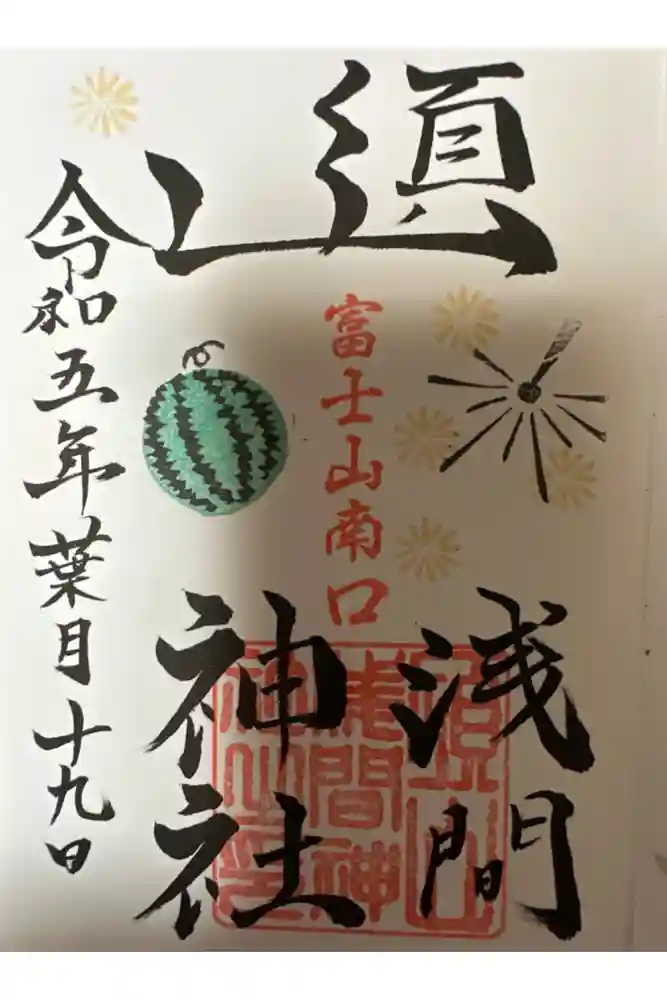 須山
浅間
神社
富士山南口
令和五年葉月十九日
須山
浅間神
社之印